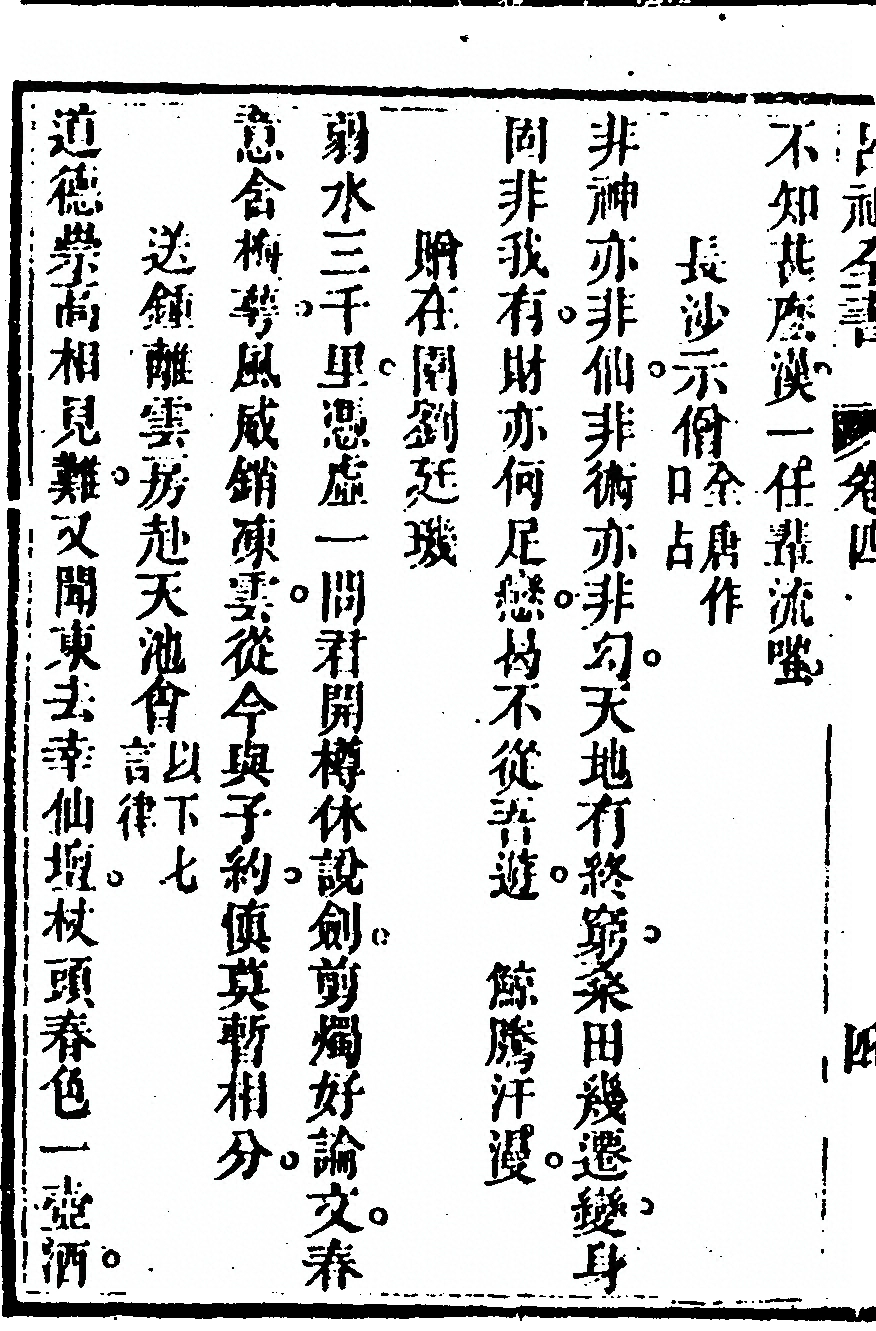 呂祖全書 卷四 四
不知甚麼漢。一任輩流嗤
長沙示僧 全唐作口占
非神亦非仙。非術亦非幻。天地有終窮。桑田幾遷變。身
固非我有。財亦何足戀。曷不從吾遊。 鯨騰汗漫。
贈在園劉廷璣
弱水三千里。憑虛一問君開樽休說劍。剪燭好論文。春
意含梅萼。風威銷凍雲。從今與子約。慎莫暫相分。
送鍾離雲房赴天池會 以下七言律
道德崇高相見難。又聞東去幸仙壇。杖頭春色一壺酒。